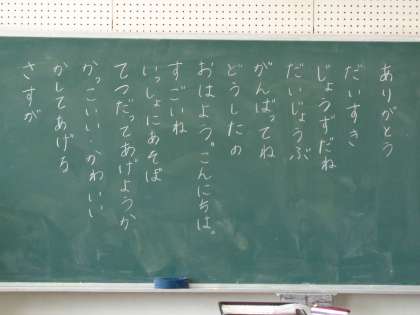 ありがとう
だいすき
じょうずだね
だいじょうぶ
がんばってね
どうしたの
おはよう。こんにちは。
すごいね
いっしょにあそぼ
てつだってあげようか
かっこいい・かわいい
かしてあげる
さすが